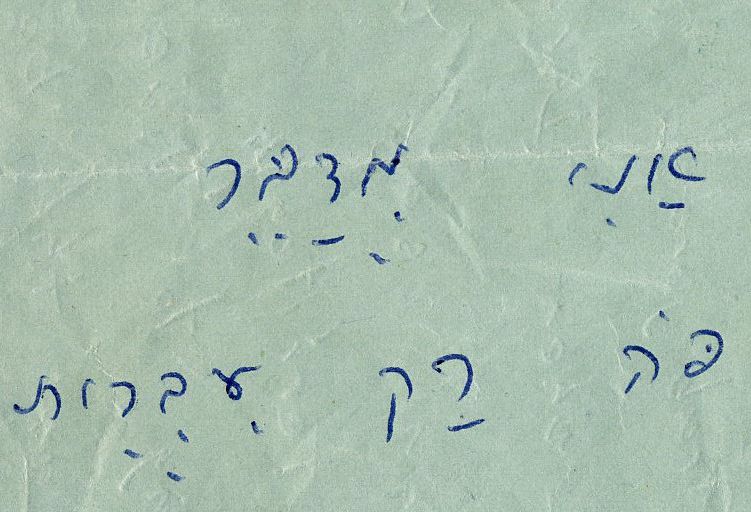 אַנִי מְדַבֵּר
פֹּה רַק עִבְרִית